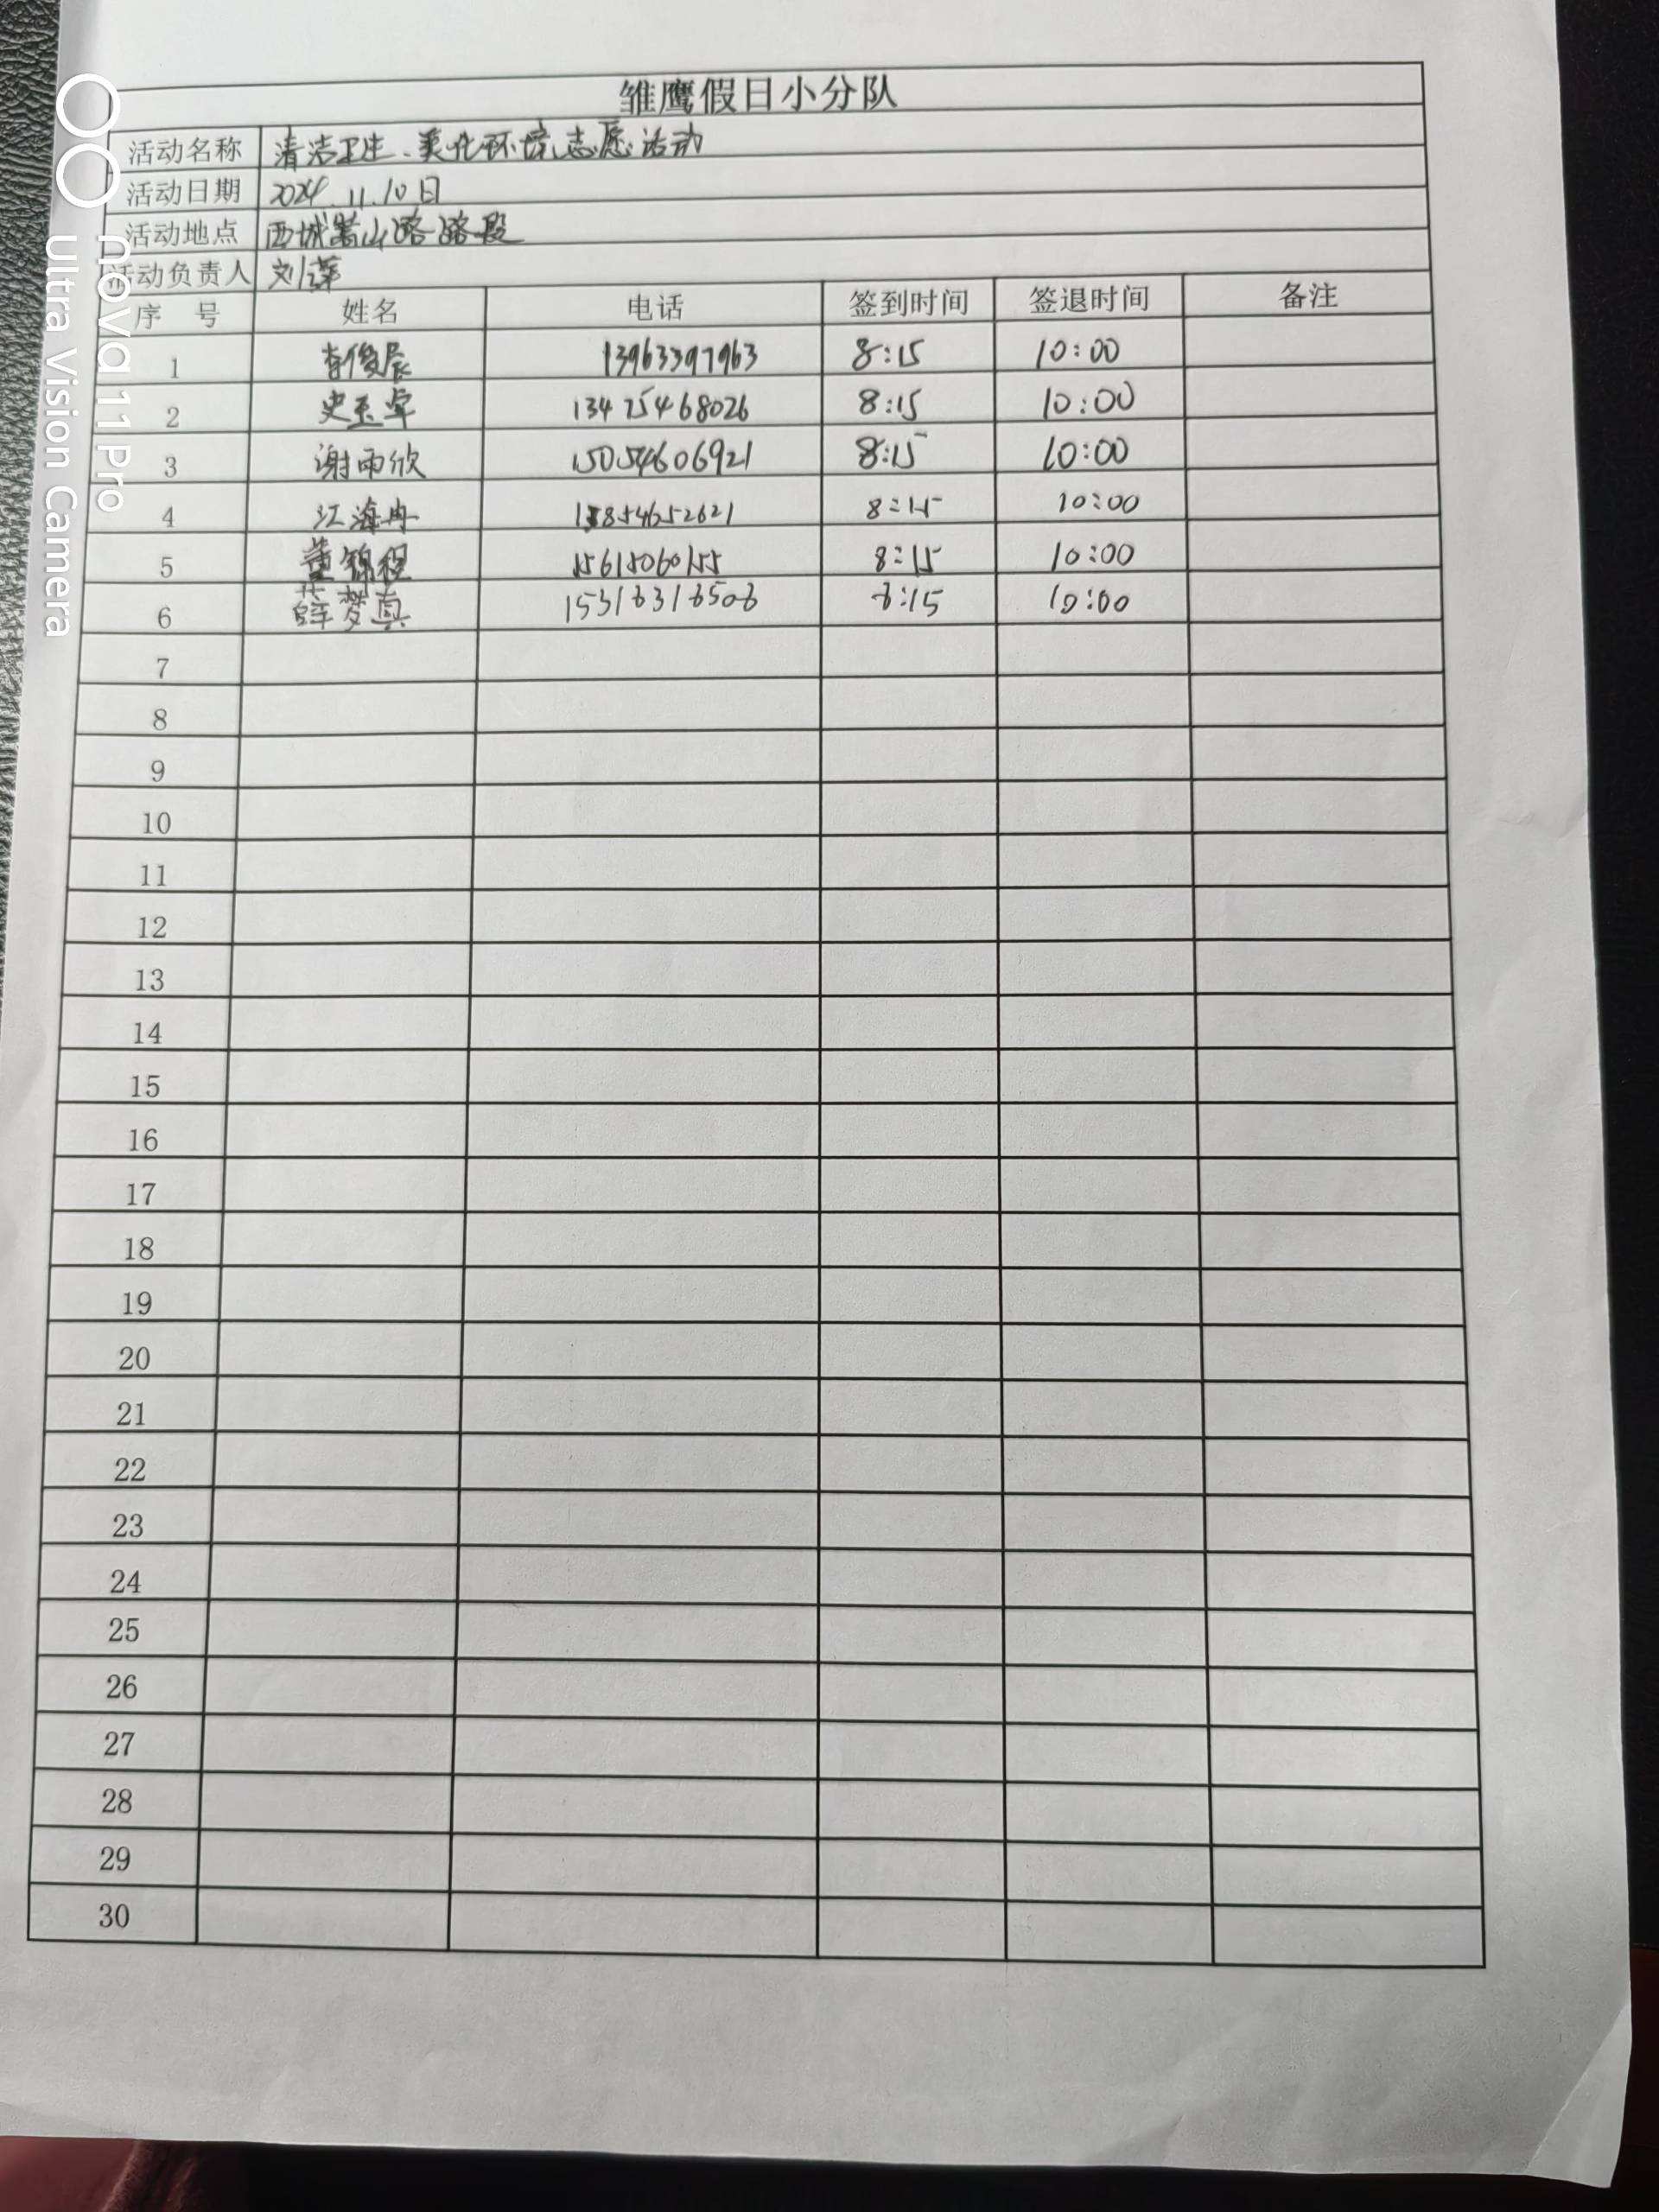 雏鹰假日小分队
活动名称 清洁卫生、美化环境志愿活动
活动日期 2024.11.10日
活动地点 西城嵩山路路段
活动负责人 刘萍
序 号 姓名 电话 签到时间 签退时间 备注
1 李俊辰 13963397963 8:15 10:00
2 史玉卓 13475468026 8:15 10:00
3 谢雨欣 15054606921 8:15 10:00
4 江海冉 15854652621 8:15 10:00
5 董锦程 15615060155 8:15 10:00
6 薛梦真 15318318508 8:15 10:00
7
8
9
10
11
12
13
14
15
16
17
18
19
20
21
22
23
24
25
26
27
28
29
30
nova 11 Pro
Ultra Vision Camera